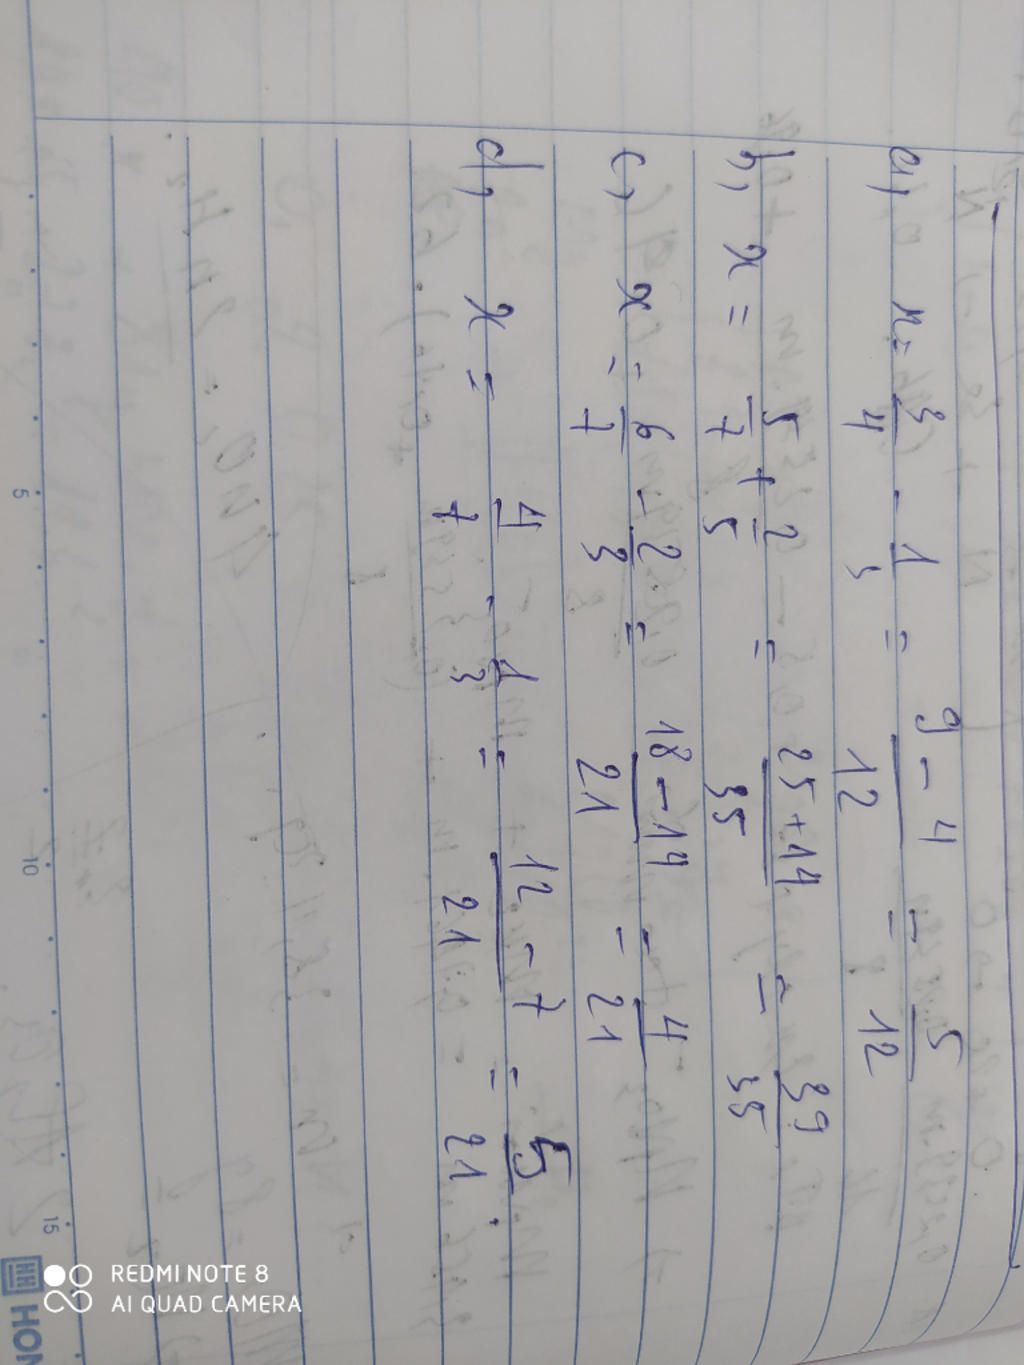 a, x = 3/4 - 1/3 = 9-4/12 = 5/12
b, x = 5/7 + 2/5 = 25+14/35 = 39/35
c, x = 6/7 - 2/3 = 18-14/21 = 4/21
d, x = 4/7 - 1/3 = 12-7/21 = 5/21
5 10 15
HON
REDMI NOTE 8
AI QUAD CAMERA